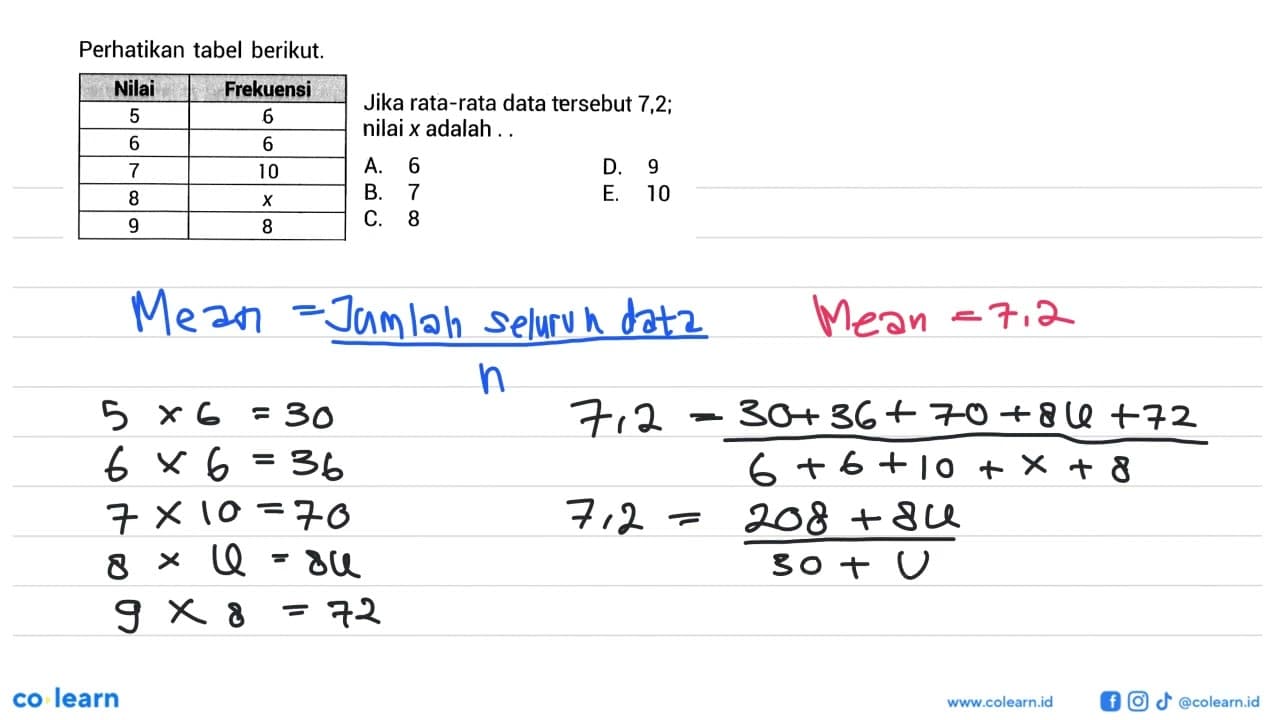 Perhatikan tabel berikut.
Nilai Frekuensi
5 6
6 6
7 10
8 x
9 8
Jika rata-rata data tersebut 7,2;
nilai x adalah . .
A. 6
B. 7
C. 8
D. 9
E. 10
Mean = Jumlah seluruh data
n
Mean = 7,2
5 × 6 = 30
6 × 6 = 36
7 × 10 = 70
8 × u = 8u
9 × 8 = 72
7,2 = 30 + 36 + 70 + 8u + 72
6 + 6 + 10 + x + 8
7,2 = 208 + 8u
30 + u
co learn
www.colearn.id
@colearn.id